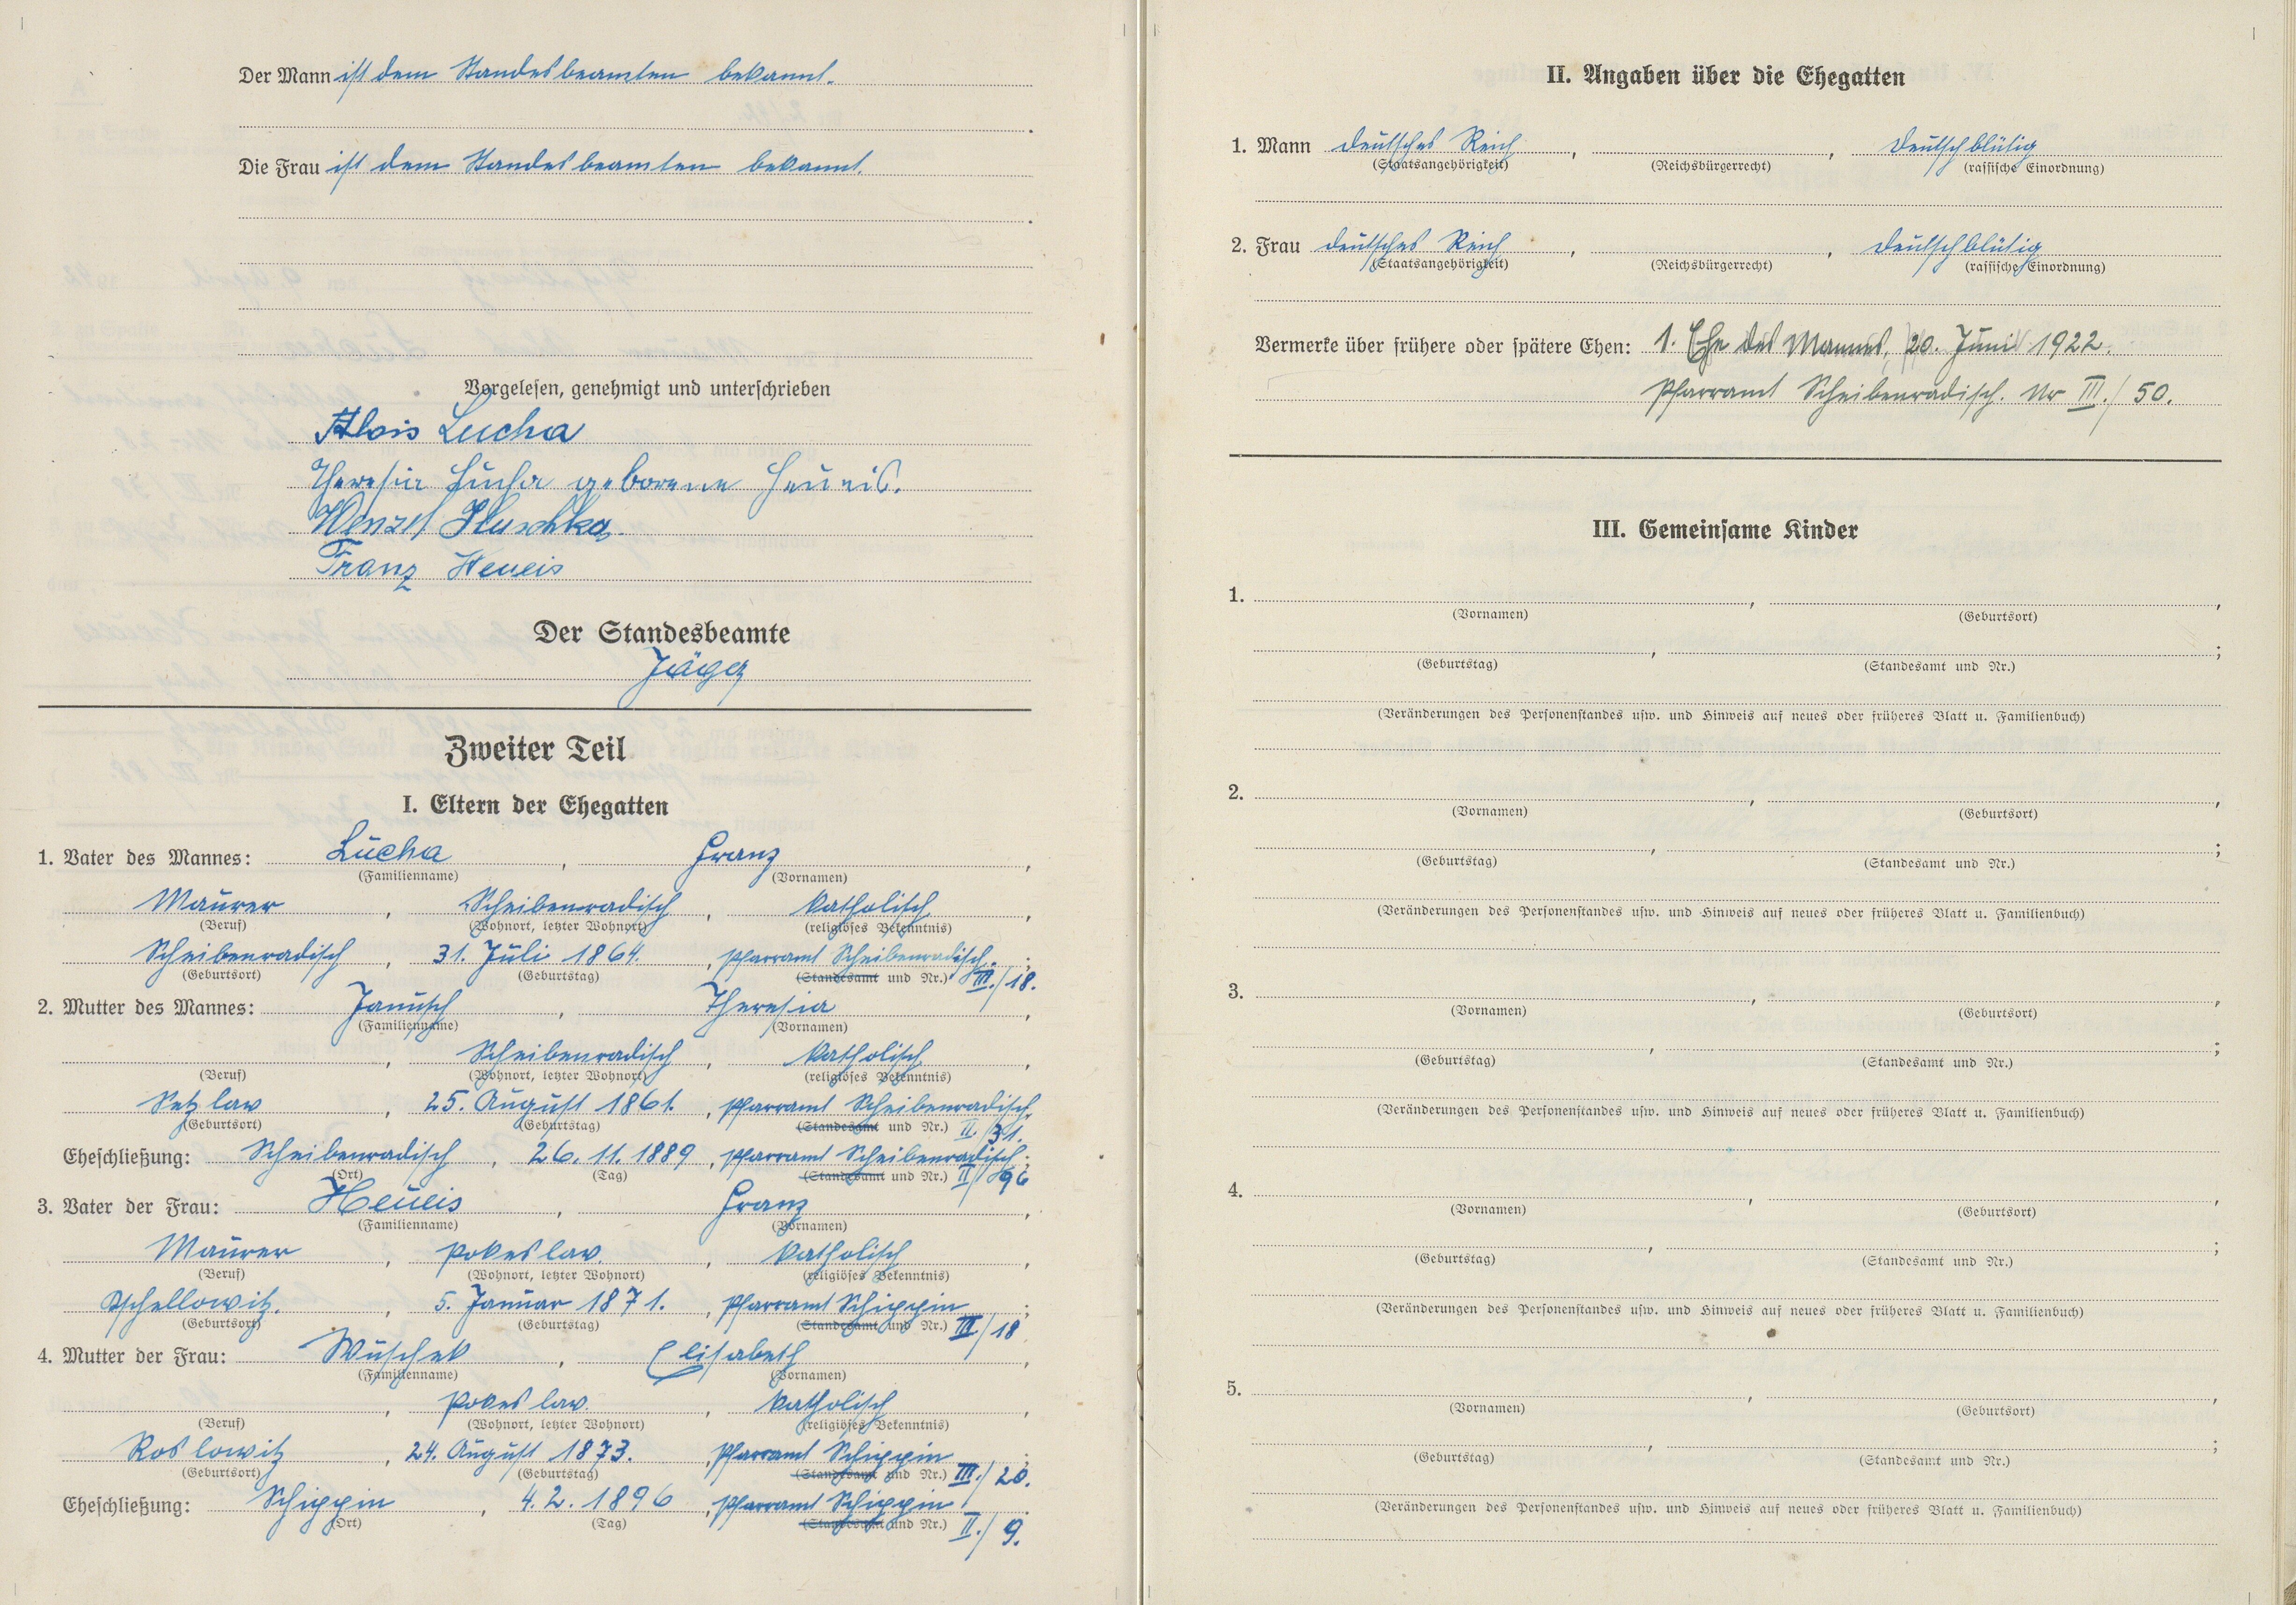 Der Mann ist dem Standesbeamten bekannt.
Die Frau ist dem Standesbeamten bekannt.
Vorgelesen, genehmigt und unterschrieben
Alois Lucha
Theresia Lucha geborene Heueis.
Wenzel Hluschka
Franz Heueis
Der Standesbeamte
Jäger
Zweiter Teil
I. Eltern der Ehegatten
1. Vater des Mannes: Lucha, Franz,
(Familienname) (Vornamen)
Maurer, Scheibenradisch, katholisch,
(Beruf) (Wohnort, letzter Wohnort) (religiöses Bekenntnis)
Scheibenradisch, 31. Juli 1864., Pfarramt Scheibenradisch.;
(Geburtsort) (Geburtstag) (Standesamt und Nr.) III./18.
2. Mutter des Mannes: Janusch, Theresia,
(Familienname) (Vornamen)
, Scheibenradisch, katholisch,
(Beruf) (Wohnort, letzter Wohnort) (religiöses Bekenntnis)
Setzlaw, 25. August 1861., Pfarramt Scheibenradisch,
(Geburtsort) (Geburtstag) (Standesamt und Nr.) II./31.
Eheschließung: Scheibenradisch, 26.11.1889, Pfarramt Scheibenradisch;
(Ort) (Tag) (Standesamt und Nr.) II/96
3. Vater der Frau: Heueis, Franz,
(Familienname) (Vornamen)
Maurer, Pokeslaw., katholisch,
(Beruf) (Wohnort, letzter Wohnort) (religiöses Bekenntnis)
Tschellowitz., 5. Januar 1871., Pfarramt Schippin;
(Geburtsort) (Geburtstag) (Standesamt und Nr.) III/18
4. Mutter der Frau: Wuschek, Elisabeth,
(Familienname) (Vornamen)
, Pokeslaw., katholisch,
(Beruf) (Wohnort, letzter Wohnort) (religiöses Bekenntnis)
Roslowitz, 24. August 1873., Pfarramt Schippin;
(Geburtsort) (Geburtstag) (Standesamt und Nr.) III./20.
Eheschließung: Schippin, 4.2.1896, Pfarramt Schippin
(Ort) (Tag) (Standesamt und Nr.) II./9.
II. Angaben über die Ehegatten
1. Mann deutsches Reich, , deutschblütig
(Staatsangehörigkeit) (Reichsbürgerrecht) (rassische Einordnung)
2. Frau deutsches Reich, , deutschblütig
(Staatsangehörigkeit) (Reichsbürgerrecht) (rassische Einordnung)
Vermerke über frühere oder spätere Ehen: 1. Ehe des Mannes, 20. Juni 1922.
Pfarramt Scheibenradisch. Nr III./50.
III. Gemeinsame Kinder
1. , ,
(Vornamen) (Geburtsort)
, ;
(Geburtstag) (Standesamt und Nr.)
(Veränderungen des Personenstandes usw. und Hinweis auf neues oder früheres Blatt u. Familienbuch)
2. , ,
(Vornamen) (Geburtsort)
, ;
(Geburtstag) (Standesamt und Nr.)
(Veränderungen des Personenstandes usw. und Hinweis auf neues oder früheres Blatt u. Familienbuch)
3. , ,
(Vornamen) (Geburtsort)
, ;
(Geburtstag) (Standesamt und Nr.)
(Veränderungen des Personenstandes usw. und Hinweis auf neues oder früheres Blatt u. Familienbuch)
4. , ,
(Vornamen) (Geburtsort)
, ;
(Geburtstag) (Standesamt und Nr.)
(Veränderungen des Personenstandes usw. und Hinweis auf neues oder früheres Blatt u. Familienbuch)
5. , ,
(Vornamen) (Geburtsort)
, ;
(Geburtstag) (Standesamt und Nr.)
(Veränderungen des Personenstandes usw. und Hinweis auf neues oder früheres Blatt u. Familienbuch)